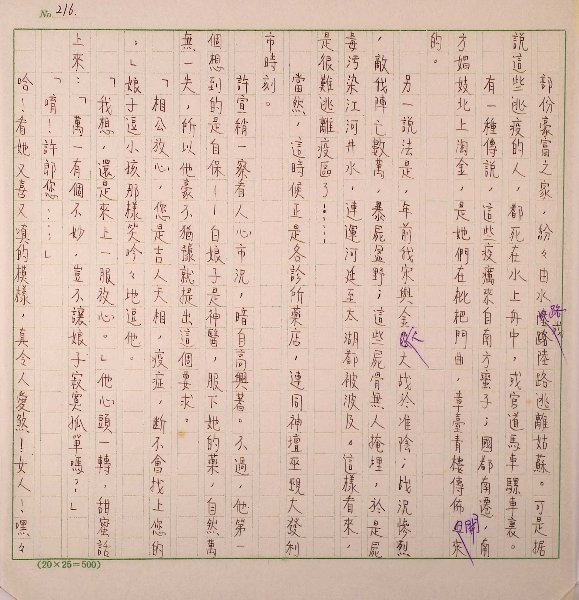 No. 216.
部份豪富之家，紛々由水路陸路逃離姑蘇。可是据
說這些逃疫的人，都死在水上舟中，或官道馬車騾車裏。
有一種傳說，這些疫癘來自南方蠻子；國都南遷，南
方娼妓北上淘金，是她們在枇杷門曲，章臺青樓傳佈開來
的。
另一說法是，年前我宋與金人大战於淮陰；战況慘烈
，敵我陣亡數萬，暴屍盈野；這些屍骨無人掩埋，於是屍
毒污染江河井水，連運河延至太湖都被波及。這樣看來，
是很難逃離疫區了……
當然，這時候正是各診所藥店，連同神壇巫覡大發利
市時刻。
許宣稍一察看人心市況，暗自高興著。不過，他第一
個想到的是自保──白娘子是神醫，服下她的藥，自然萬
無一失，所以他毫不猶豫就提出這個要求。
「相公放心，您是吉人天相，疫症，斷不會找上您的
。」娘子逗小孩那樣笑吟々地逗他。
「我想，還是來上一服放心。」他心頭一轉，甜蜜話
上來：「萬一有個不妙，豈不讓娘子寂寞孤單嗎？」
「唷！許郎您……」
哈！看她又喜又嗔的模樣，真令人愛煞！女人！嘿々
(20×25=500)